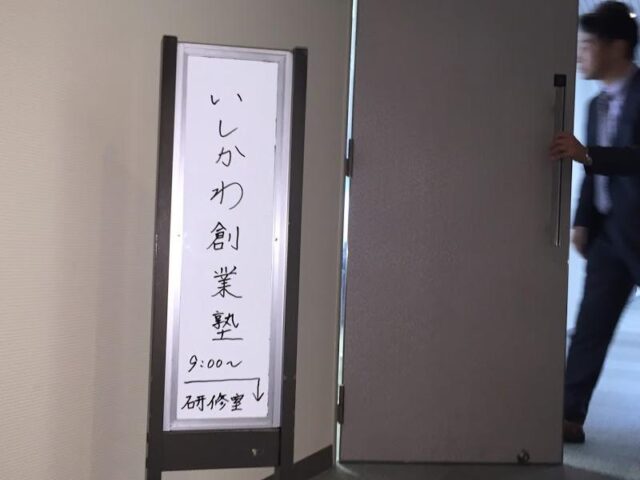 いしかわ創業塾
9:00〜
研修室